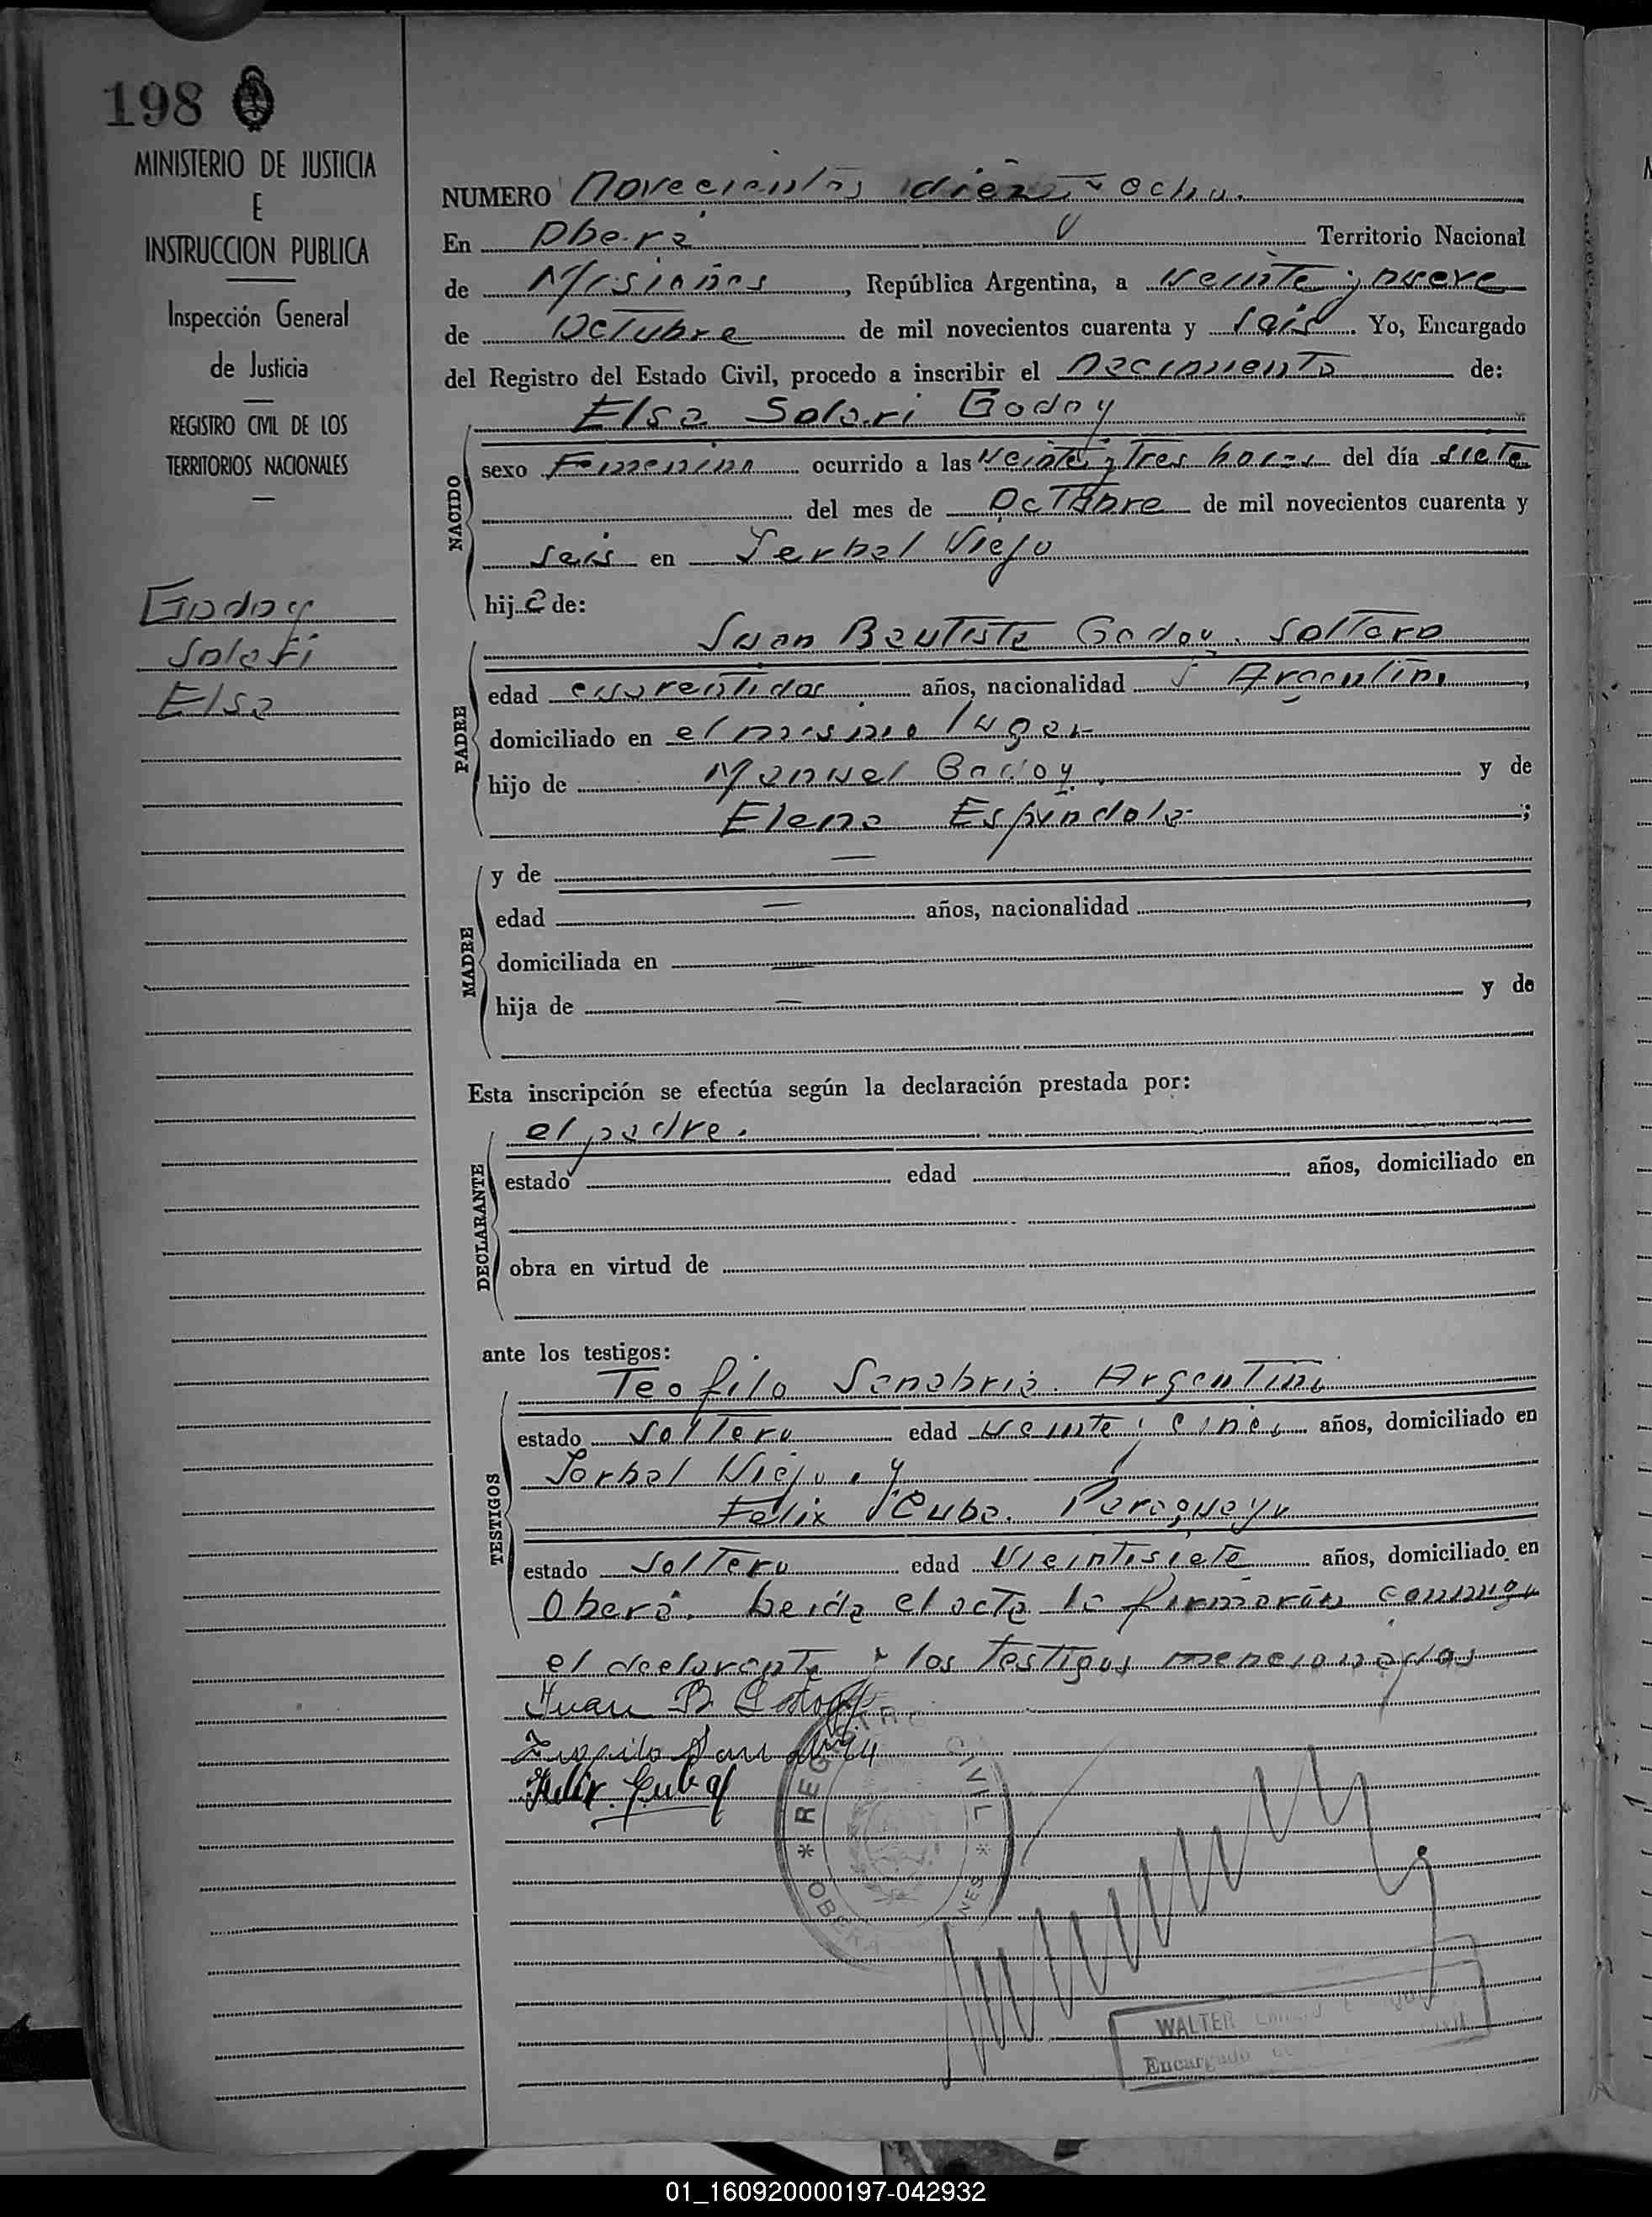 198
MINISTERIO DE JUSTICIA
E
INSTRUCCION PUBLICA
Inspección General
de Justicia
REGISTRO CIVIL DE LOS
TERRITORIOS NACIONALES
Godoy
Solari
Elsa
NUMERO novecientos diez y ocho.
En Oberá Territorio Nacional
de Misiones, República Argentina, a veinte y nueve
de Octubre de mil novecientos cuarenta y seis. Yo, Encargado
del Registro del Estado Civil, procedo a inscribir el nacimiento de:
Elsa Solari Godoy
NACIDO
sexo Femenino ocurrido a las veinte y tres horas del día siete
del mes de Octubre de mil novecientos cuarenta y
seis en Yerbal Viejo
hija de:
PADRE
Juan Bautista Godoy. soltero
edad cuarentidos años, nacionalidad Argentino,
domiciliado en el mismo lugar
hijo de Manuel Godoy, y de
Elena Espindola;
MADRE
y de —
edad — años, nacionalidad,
domiciliada en —
hija de — y de
Esta inscripción se efectúa según la declaración prestada por:
DECLARANTE
el padre.
estado edad años, domiciliado en
obra en virtud de
ante los testigos:
TESTIGOS
Teofilo Sanabria. Argentino
estado soltero edad veinte y cinco años, domiciliado en
Yerbal Viejo. y
Felix Cuba. Paraguayo
estado soltero edad vieintisiete años, domiciliado en
Oberá. Leida el acta la firmarán conmigo
el declarante y los testigos mencionados
Juan B Godoy
Teofilo Sanabria
Felix Cubas
* REGISTRO CIVIL *
OBERA
NES
WALTER
Encargado
01_160920000197-042932